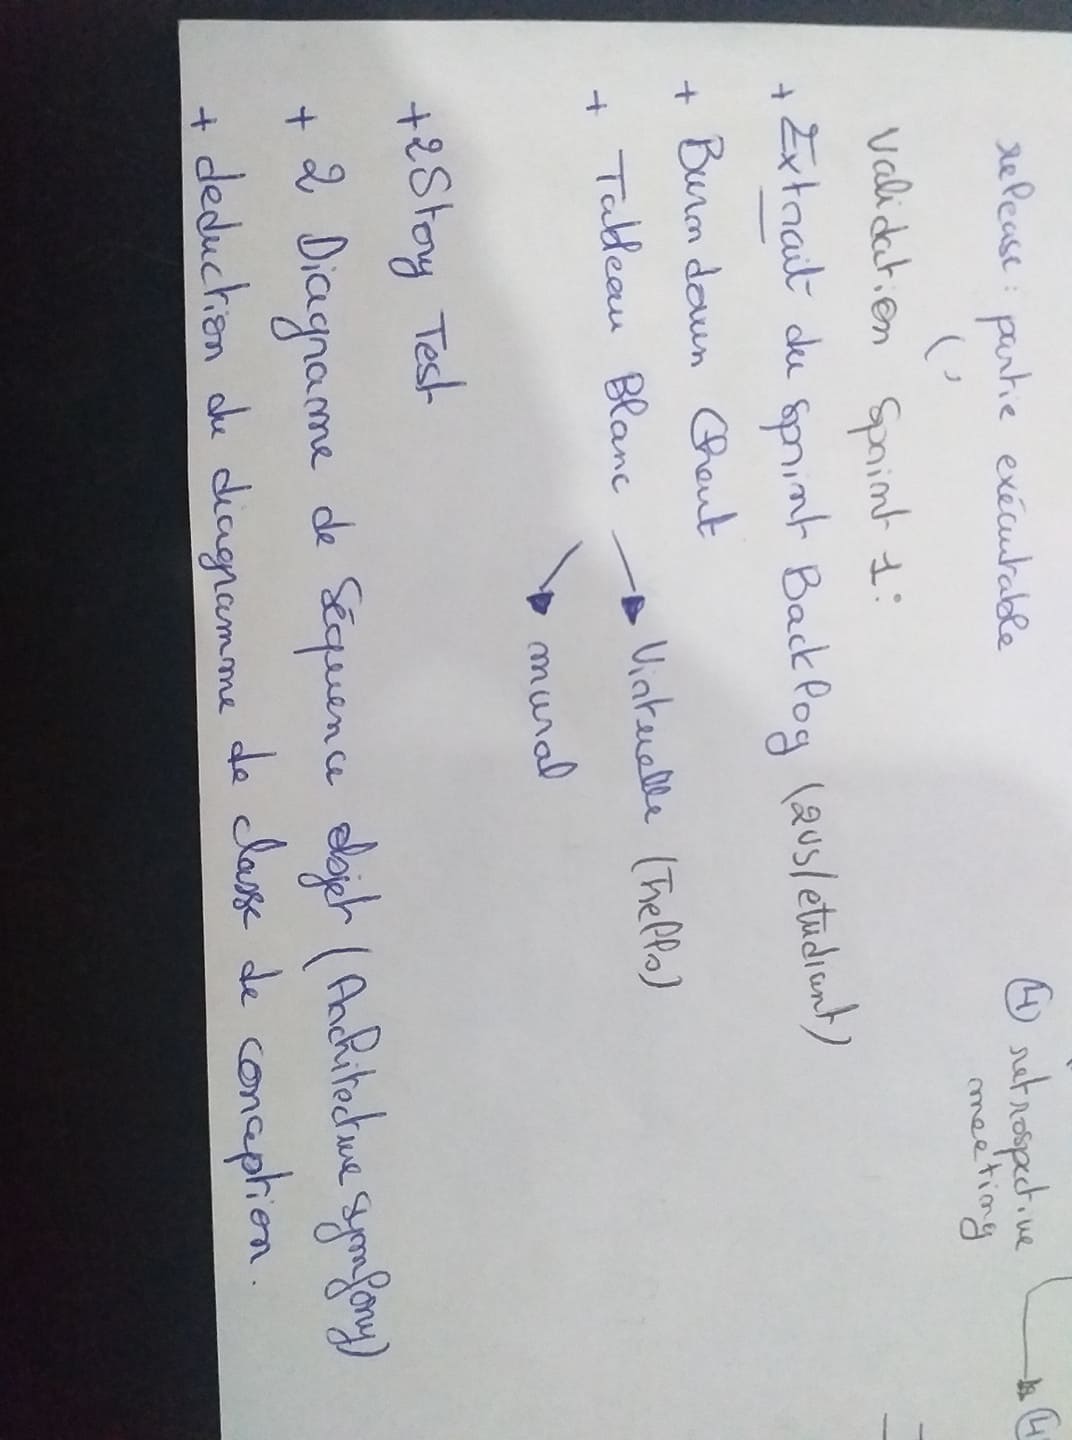 release : partie exécutable
④ retrospective
meeting
Validation Sprint 1 :
+ Extrait du sprint Backlog (2US/etudiant)
+ Burn down Chart
+ Tableau Blanc → Virtuelle (Trello)
→ mural
+ 2 Story Test
+ 2 Diagrame de Séquence objet (Architecture symfony)
+ deduction du diagramme de classe de conception.